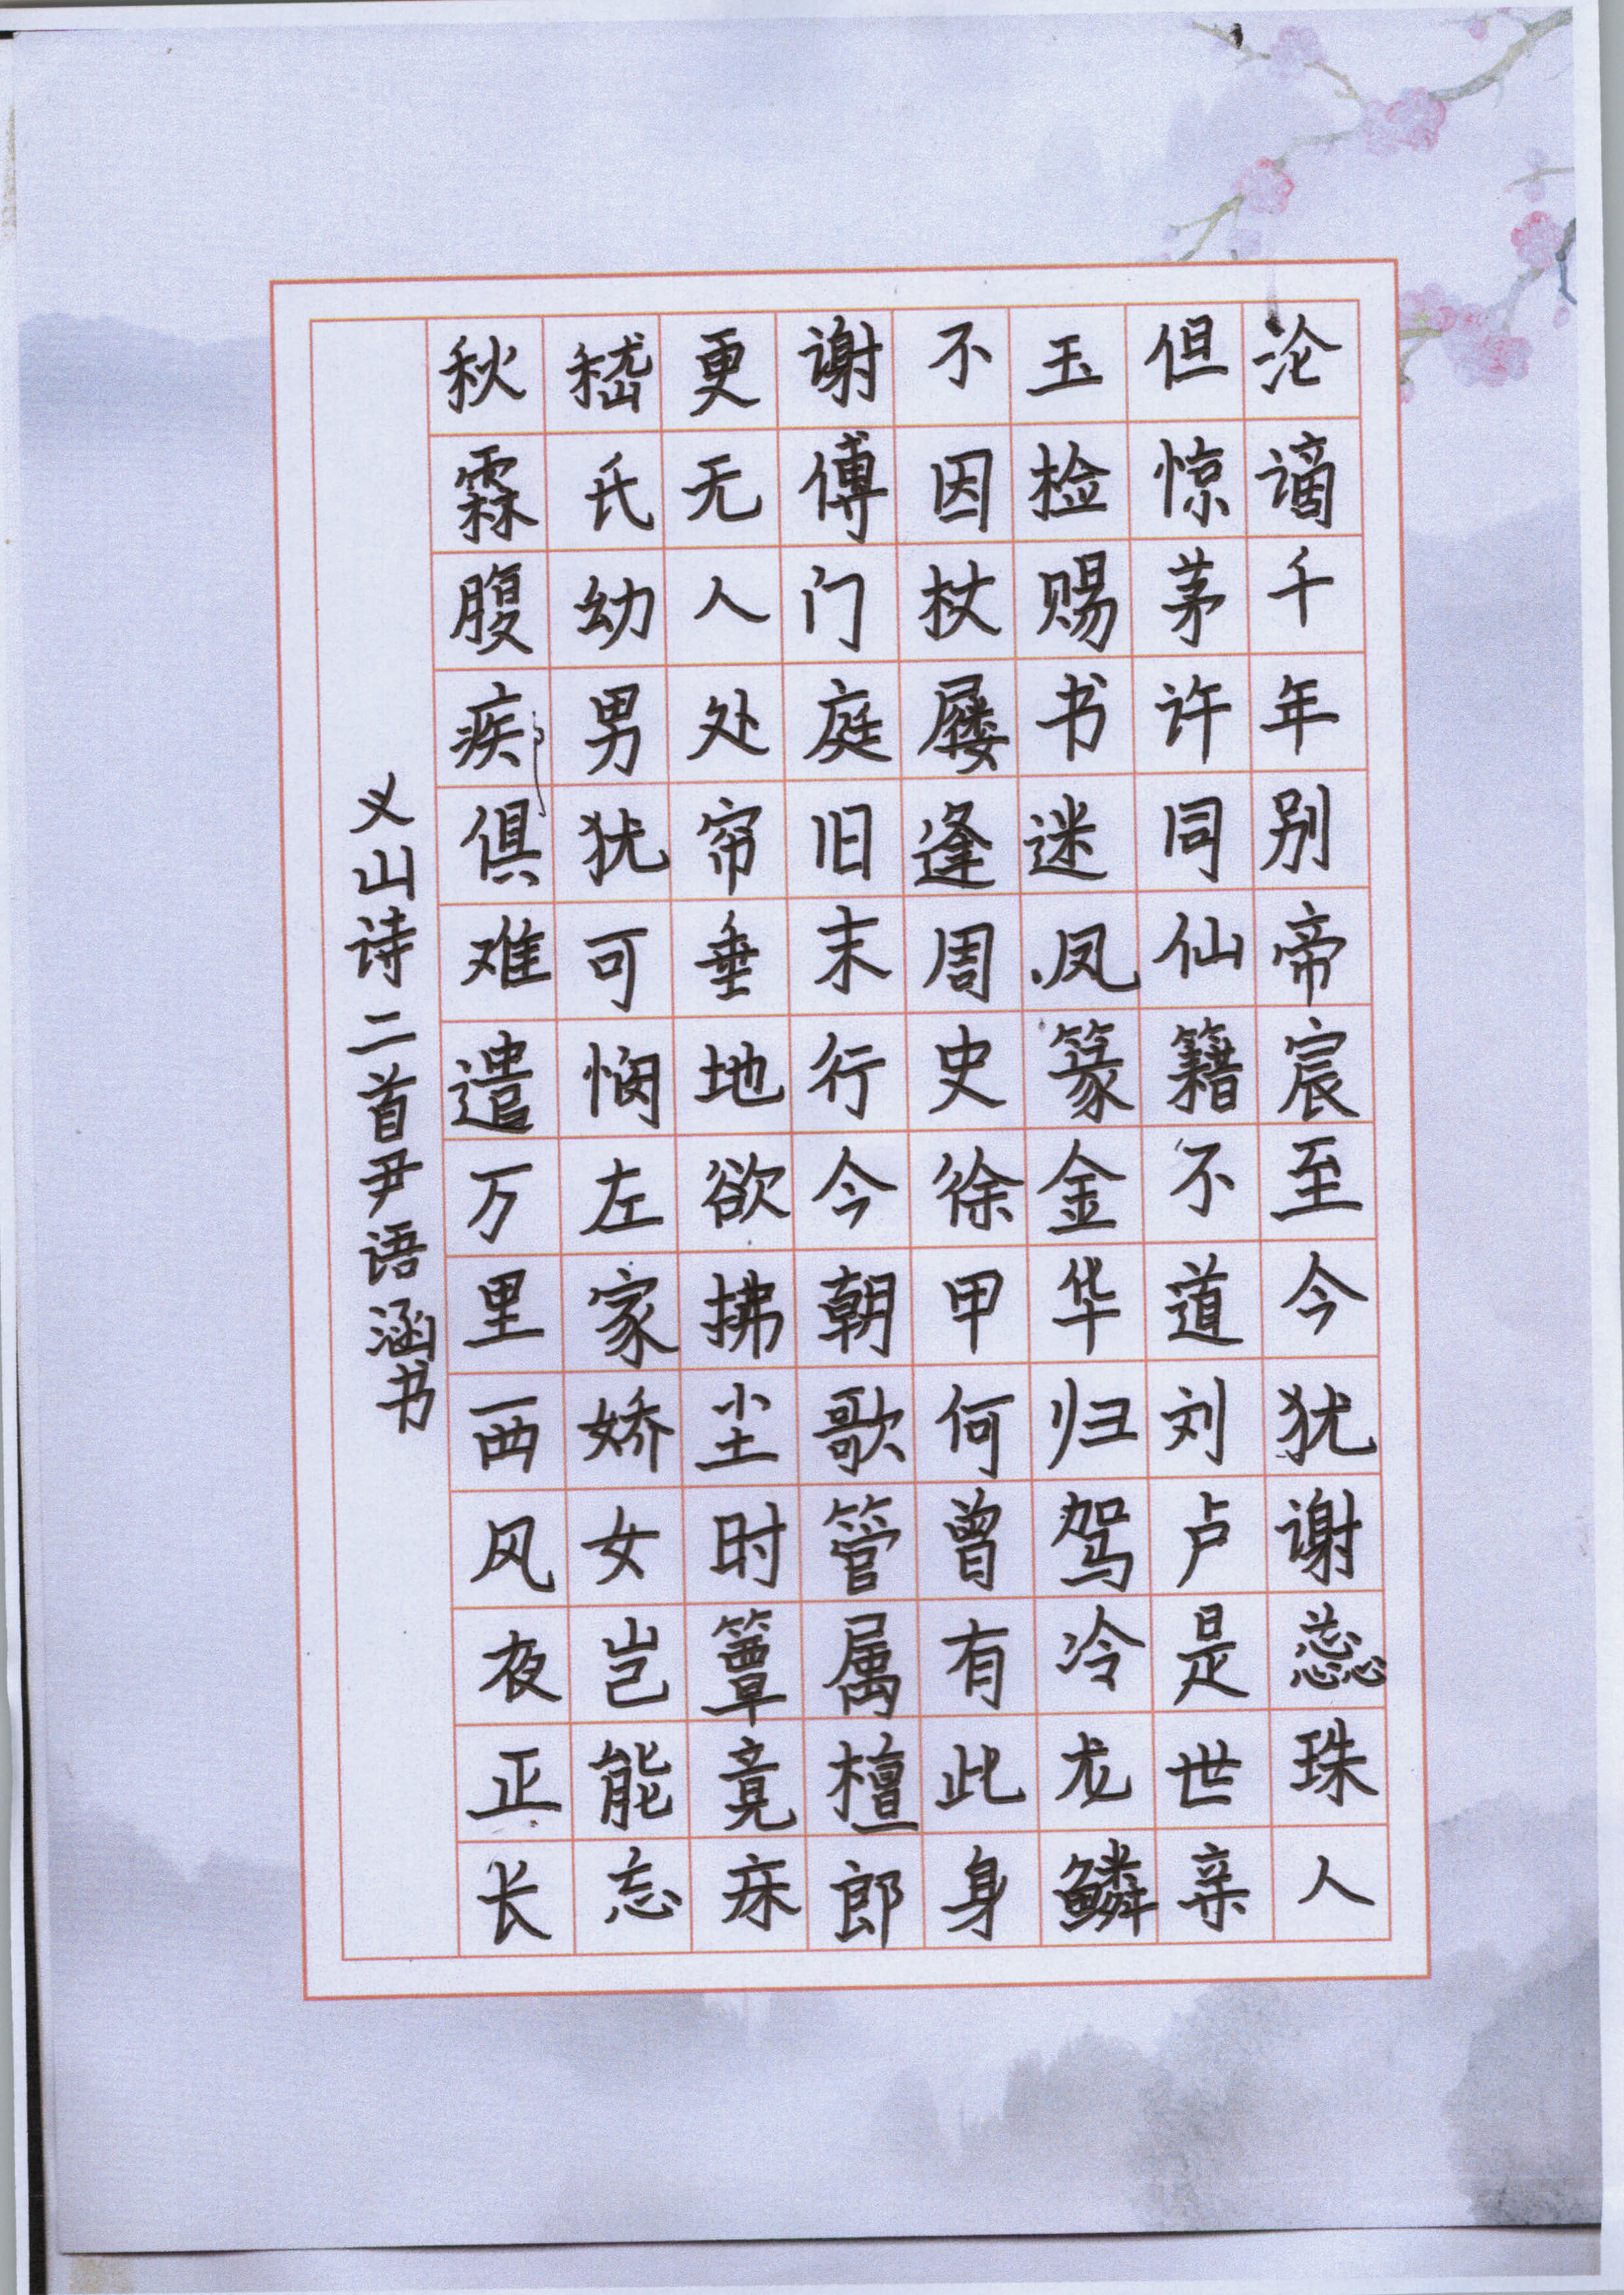 沦谪千年别帝宸至今犹谢蕊珠人
但惊茅许同仙籍不道刘卢是世亲
玉检赐书迷凤篆金华归驾冷龙鳞
不因杖屦逢周史徐甲何曾有此身
谢傅门庭旧末行今朝歌管属檀郎
更无人处帘垂地欲拂尘时簟竟床
嵇氏幼男犹可悯左家娇女岂能忘
秋霖腹疾俱难遣万里西风夜正长
义山诗二首尹语涵书